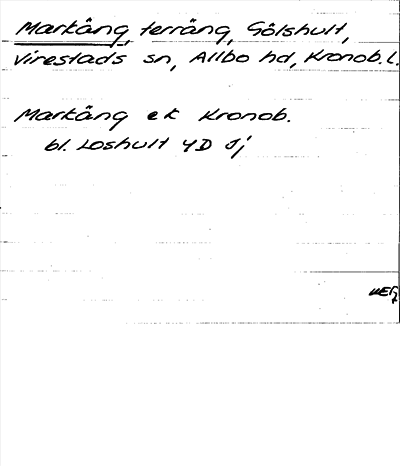 Markäng, terräng, Gölshult,
Virestads sn, Allbo hd, Kronob. l.
Markäng ek Kronob.
bl. Loshult 4D Sj